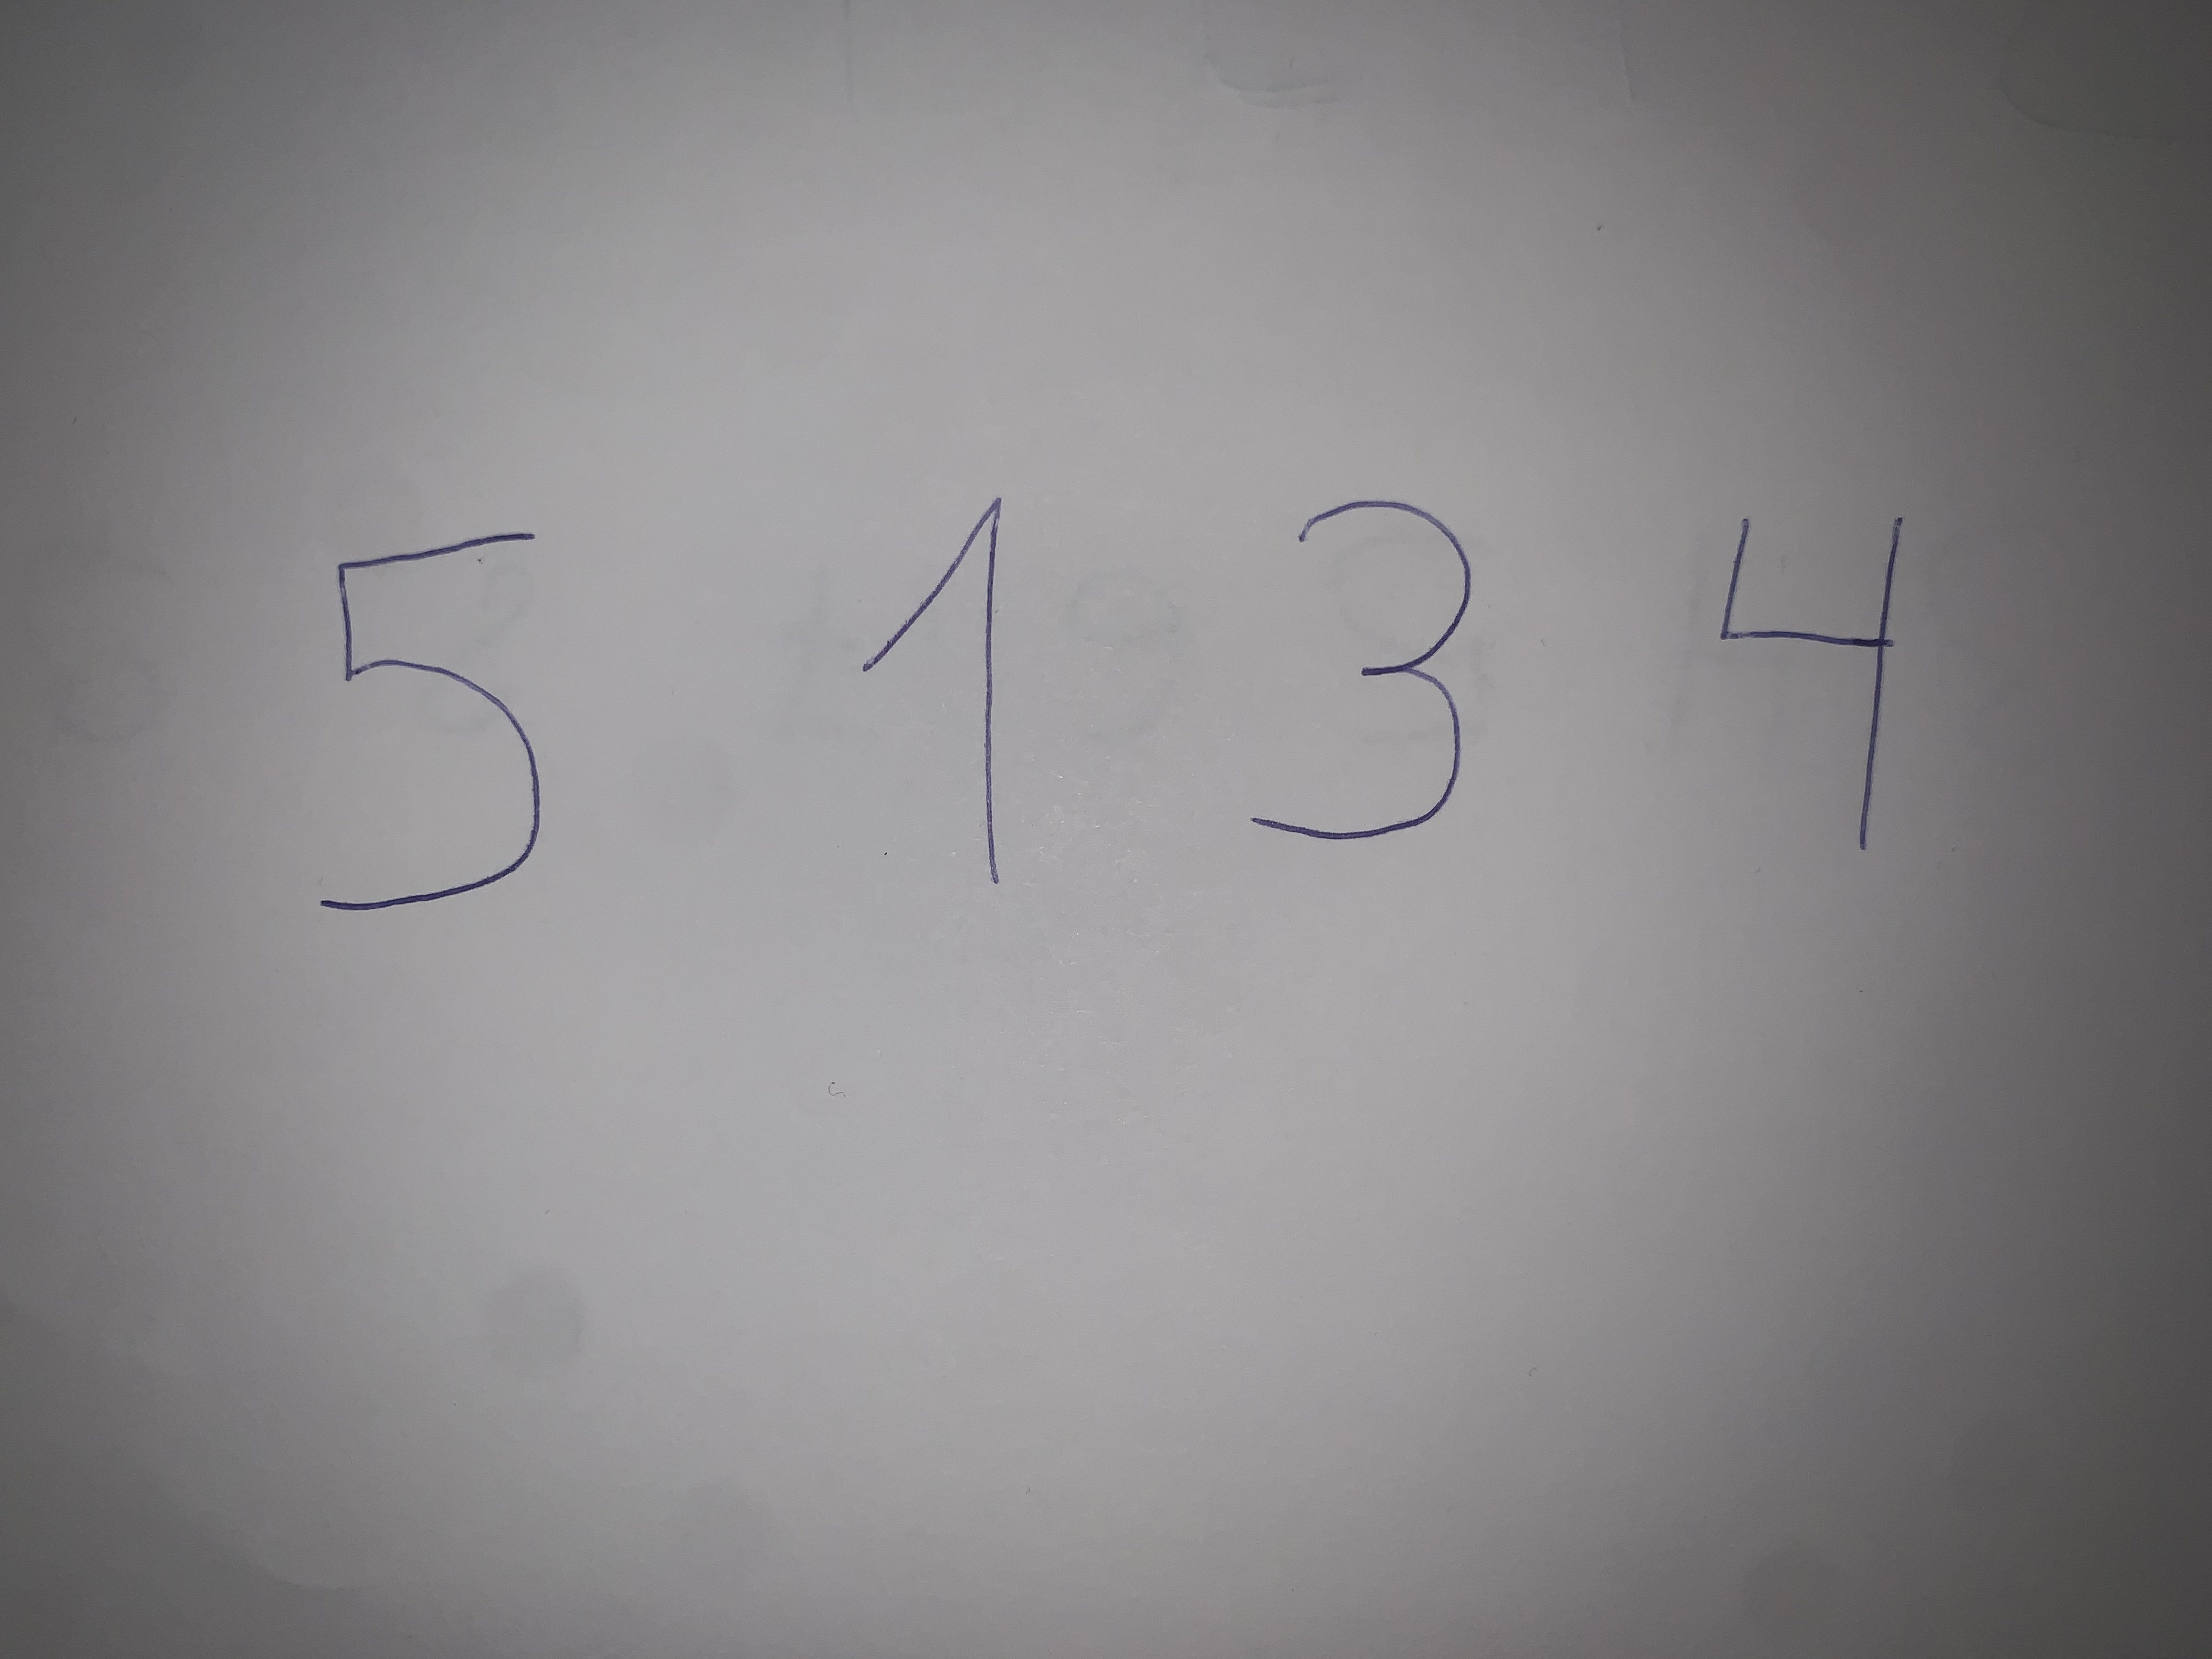 5 1 3 4